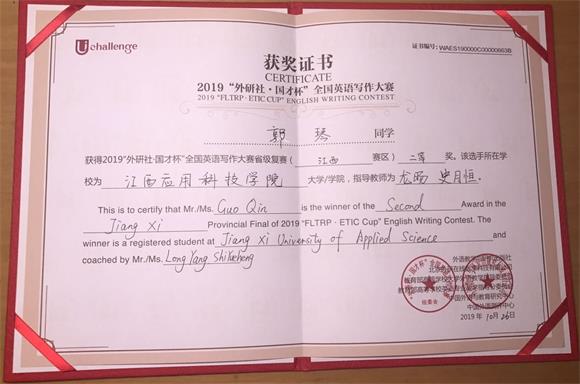 Uchallenge
证书编号：WAES190000C00000663B
获奖证书
CERTIFICATE
2019“外研社·国才杯”全国英语写作大赛
2019 “FLTRP · ETIC CUP” ENGLISH WRITING CONTEST
郭琴 同学
获得2019“外研社·国才杯”全国英语写作大赛省级复赛（江西 赛区）二等 奖。该选手所在学
校为 江西应用科技学院 大学/学院，指导教师为 龙阳 史月恒.
This is to certify that Mr./Ms. Guo Qin is the winner of the Second Award in the
Jiang Xi Provincial Final of 2019 “FLTRP · ETIC Cup” English Writing Contest. The
winner is a registered student at Jiang Xi University of Applied Science and
coached by Mr./Ms. Long Yang Shi
外语教学
中国外语与教育研究中心
中国外语测评中心
组委会
2019年10月26日